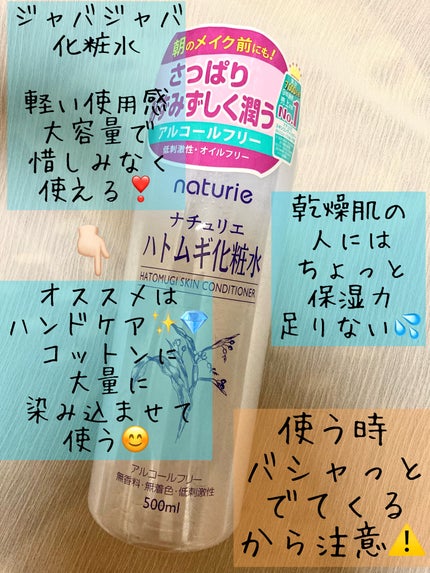 ジャバジャバ
化粧水
軽い使用感
大容量で
惜しみなく
使える❣️
👇🏻
オススメは
ハンドケア✨💎
コットンに
大量に
染み込ませて
使う😊
朝のメイク前にも!
さっぱり
みずしく潤う
アルコールフリー
低刺激性・オイルフリー
No.1
naturie
ナチュリエ
ハトムギ化粧水
HATOMUGI SKIN CONDITIONER
アルコールフリー
無香料・無着色・低刺激性
500ml
乾燥肌の
人には
ちょっと
保湿力
足りない💦
使う時
バシャっと
でてくる
から注意⚠️